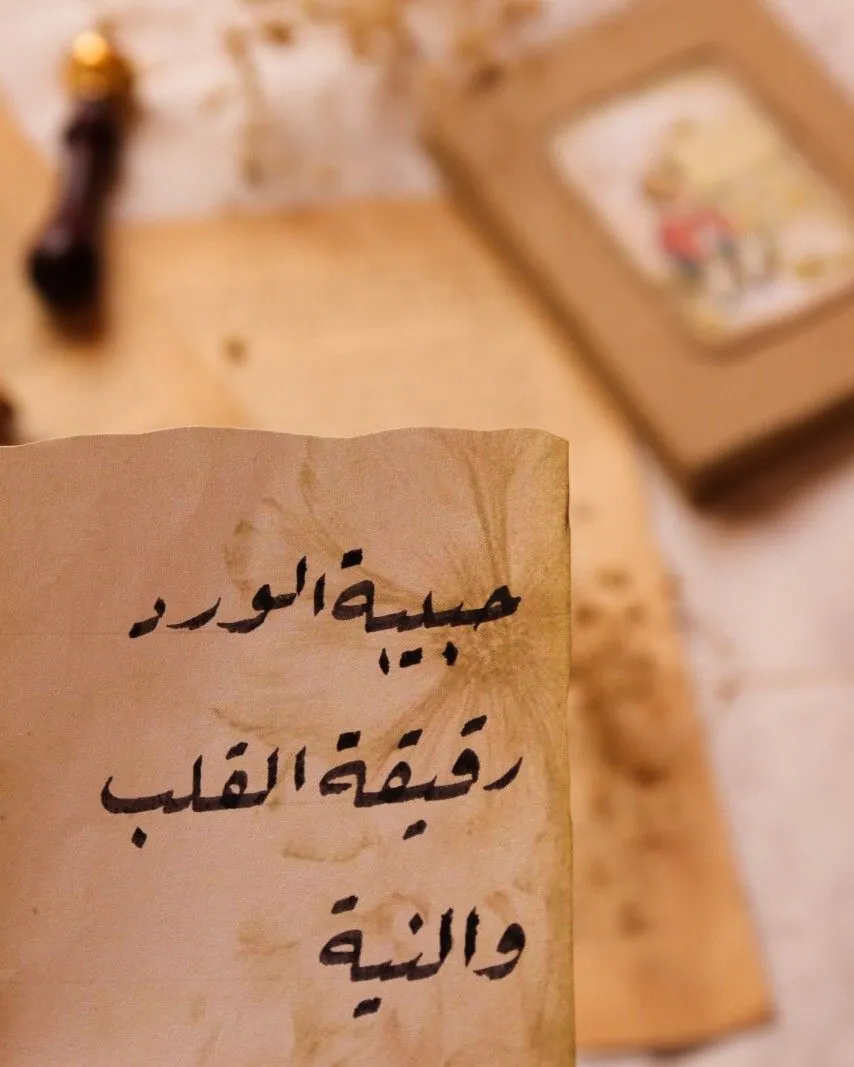 حبيبة الورد
رقيقة القلب
والنية